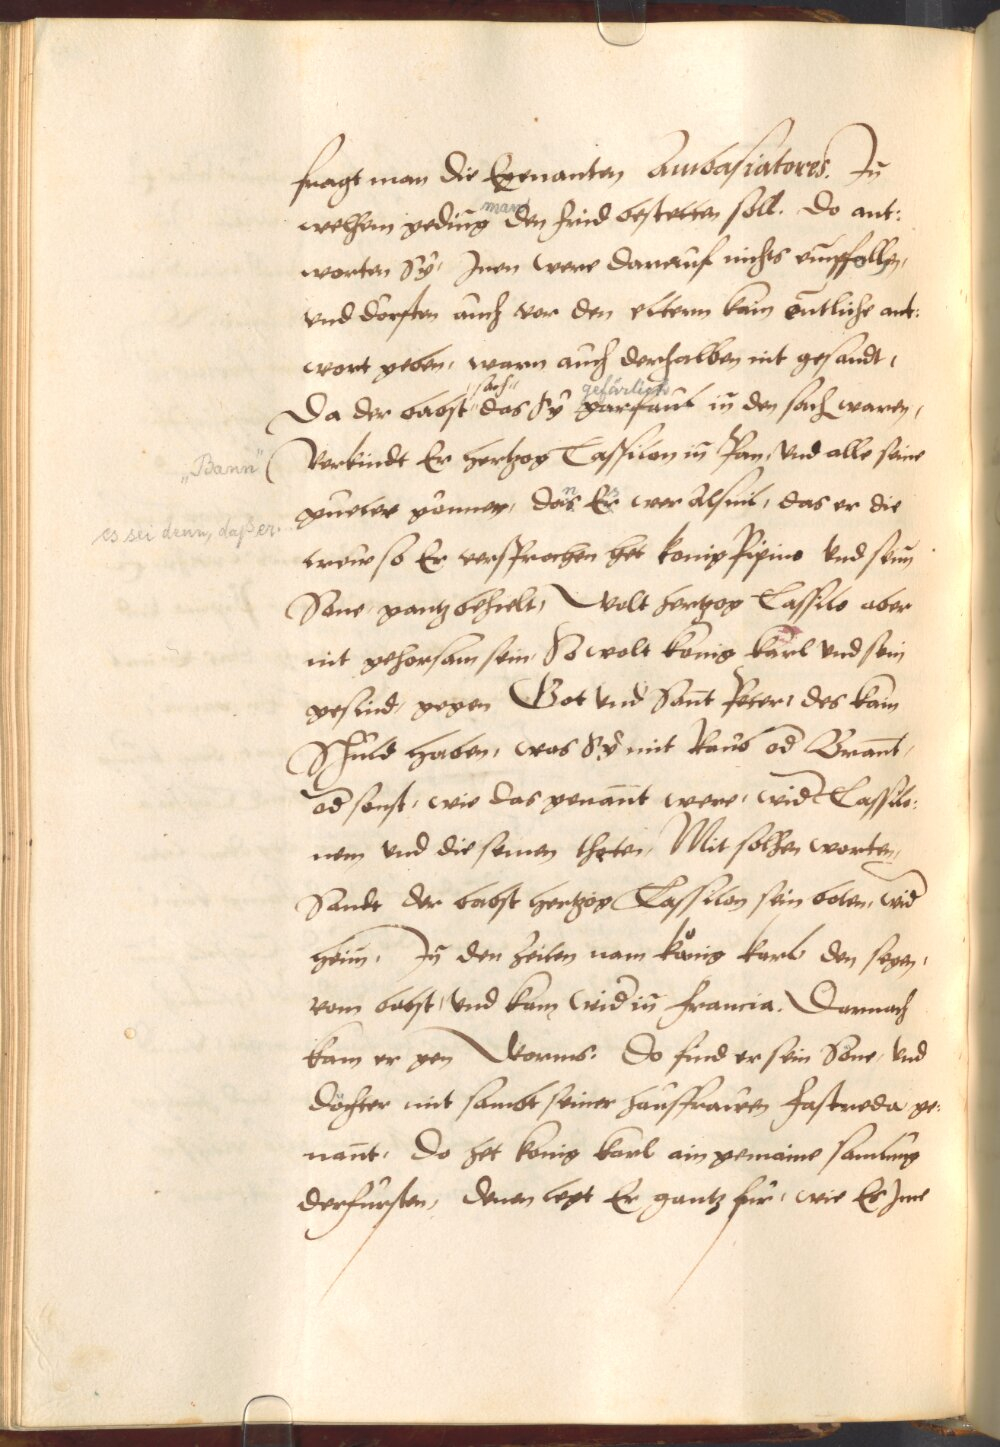 fragt man die Egenanten Ambasiatores. Jn̄
welhem geding man den frid bestetten soll. Do ant:
worten Sÿ, Jnen were darauf nichts empfolhen,
vnd dorften auch vor den eltern kain entliche ant:
wort geben, warn auch derhalben nit gesandt,
Da der babst sach das Sÿ gefärlich in den sach waren,
„Bann“ Verkündt Er hertzog Tassilon in Pan, vnd alle seine
günner, dan Es wer alsuil, das er die
es sei denn, daß er
trew so Er versprochen het konig Pipino vnd sein̄
Sone, gantz behielt, Wolt hertzog Tassilo aber
nit gehorsam sein, So wolt konig karl vnd sein
gesind, gegen Got vnd Sant Peter, des kain
Schuld haben, was Sÿ mit Raub od Brant,
od sonst, wie das genannt were, wid Tassilo:
nem vnd die seinen theten, Mit solhen worten,
Sandt der babst hertzog Tassilon sein boten, wid
heim, Jn̄ den Zeiten nam konig karl den segen,
vom babst, vnd kam wid in francia. Darnach
kam er gen Worms. Do fand er sein Sone, vnd
döchter mit sambt seiner hausfrawen fastreda ge:
nannt, Do het konig karl ain gemaine samlung
der fursten, denen legt Er gantz für, wie Es Jme